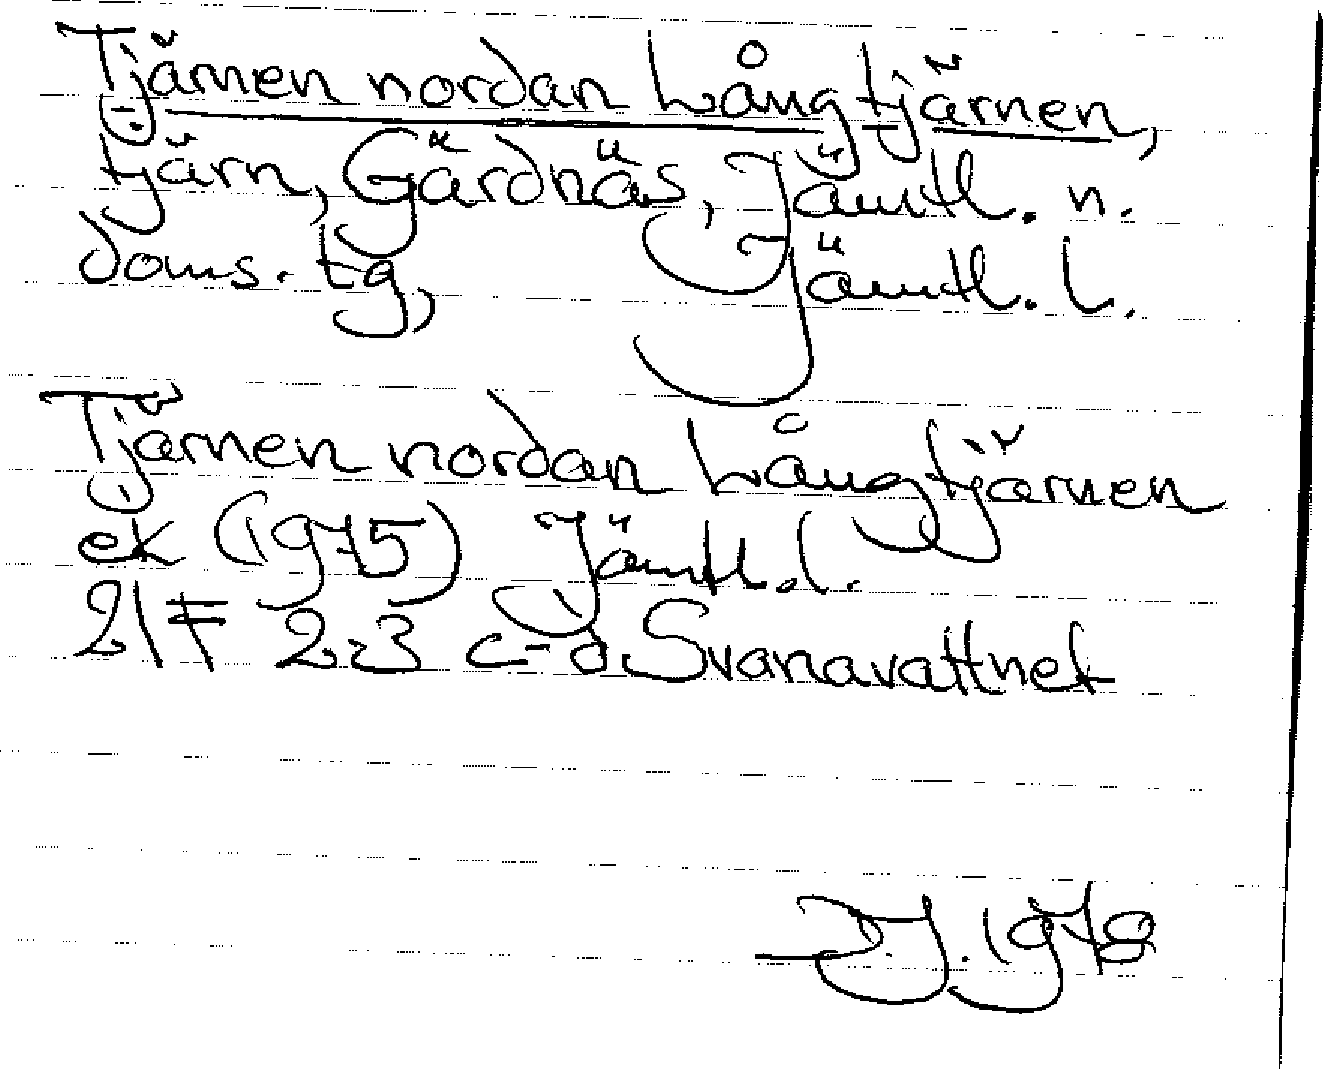 Tjärnen nordan Långtjärnen,
tjärn, Gärdnäs, Jämtl. n.
doms. tg, Jämtl. l.
Tjärnen nordan Långtjärnen
ek (1975) Jämtl. l.
21F 2-3 c-d Svanavattnet
J. 1978